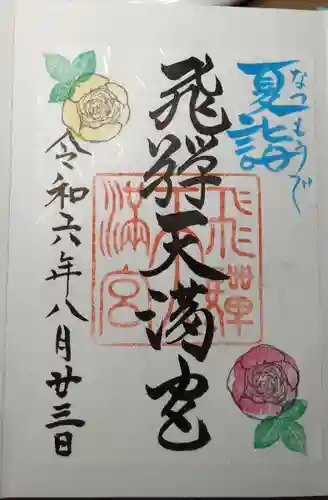 夏詣
なつもうで
飛騨天満宮
飛騨天満宮
令和六年八月廿三日